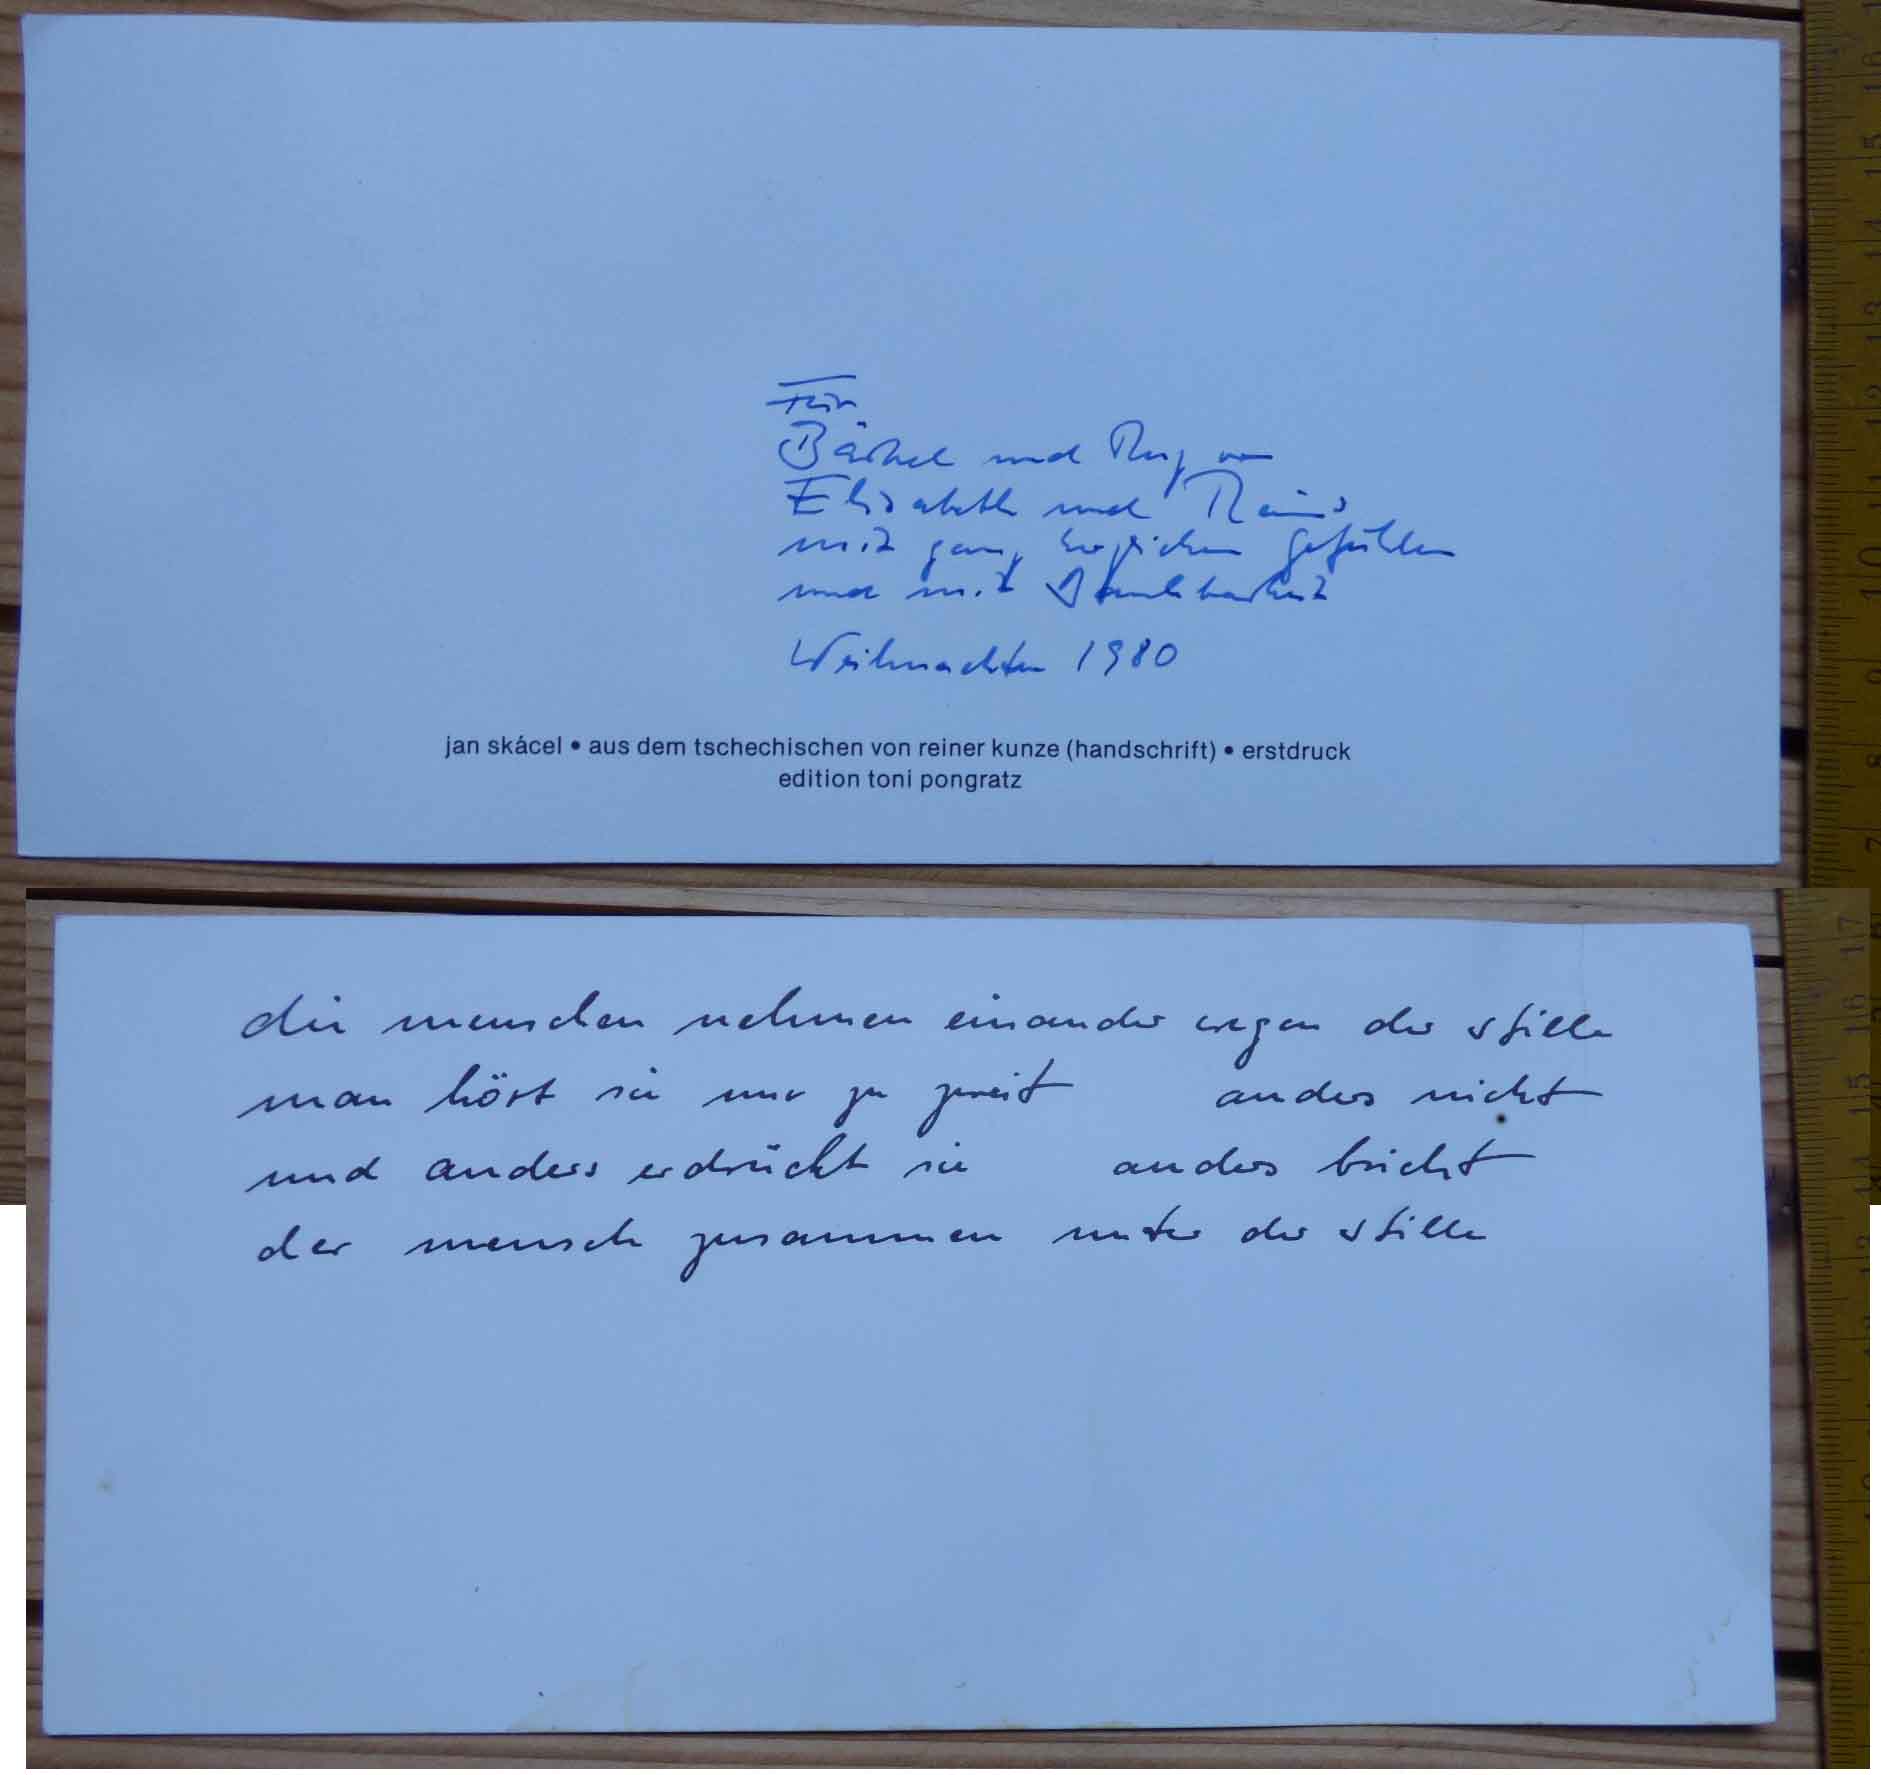 Für
Bärbel und von
Elisabeth und Reiner
mit ganz herzlichen Gefühlen
und mit Dankbarkeit
Weihnachten 1980
jan skácel • aus dem tschechischen von reiner kunze (handschrift) • erstdruck
edition toni pongratz
die menschen nehmen einander wegen der stille
man hört sie nur zu zweit anders nicht
und anders erdrückt sie anders bricht
der mensch zusammen unter der stille
17
16
15
14
13
12
11
10
9
8
7
17
16
15
14
13
12